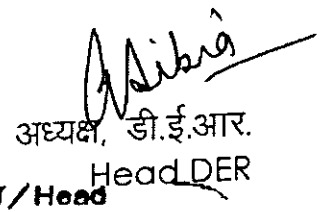 अध्यक्ष, डी.ई.आर.
Head DER
/Head